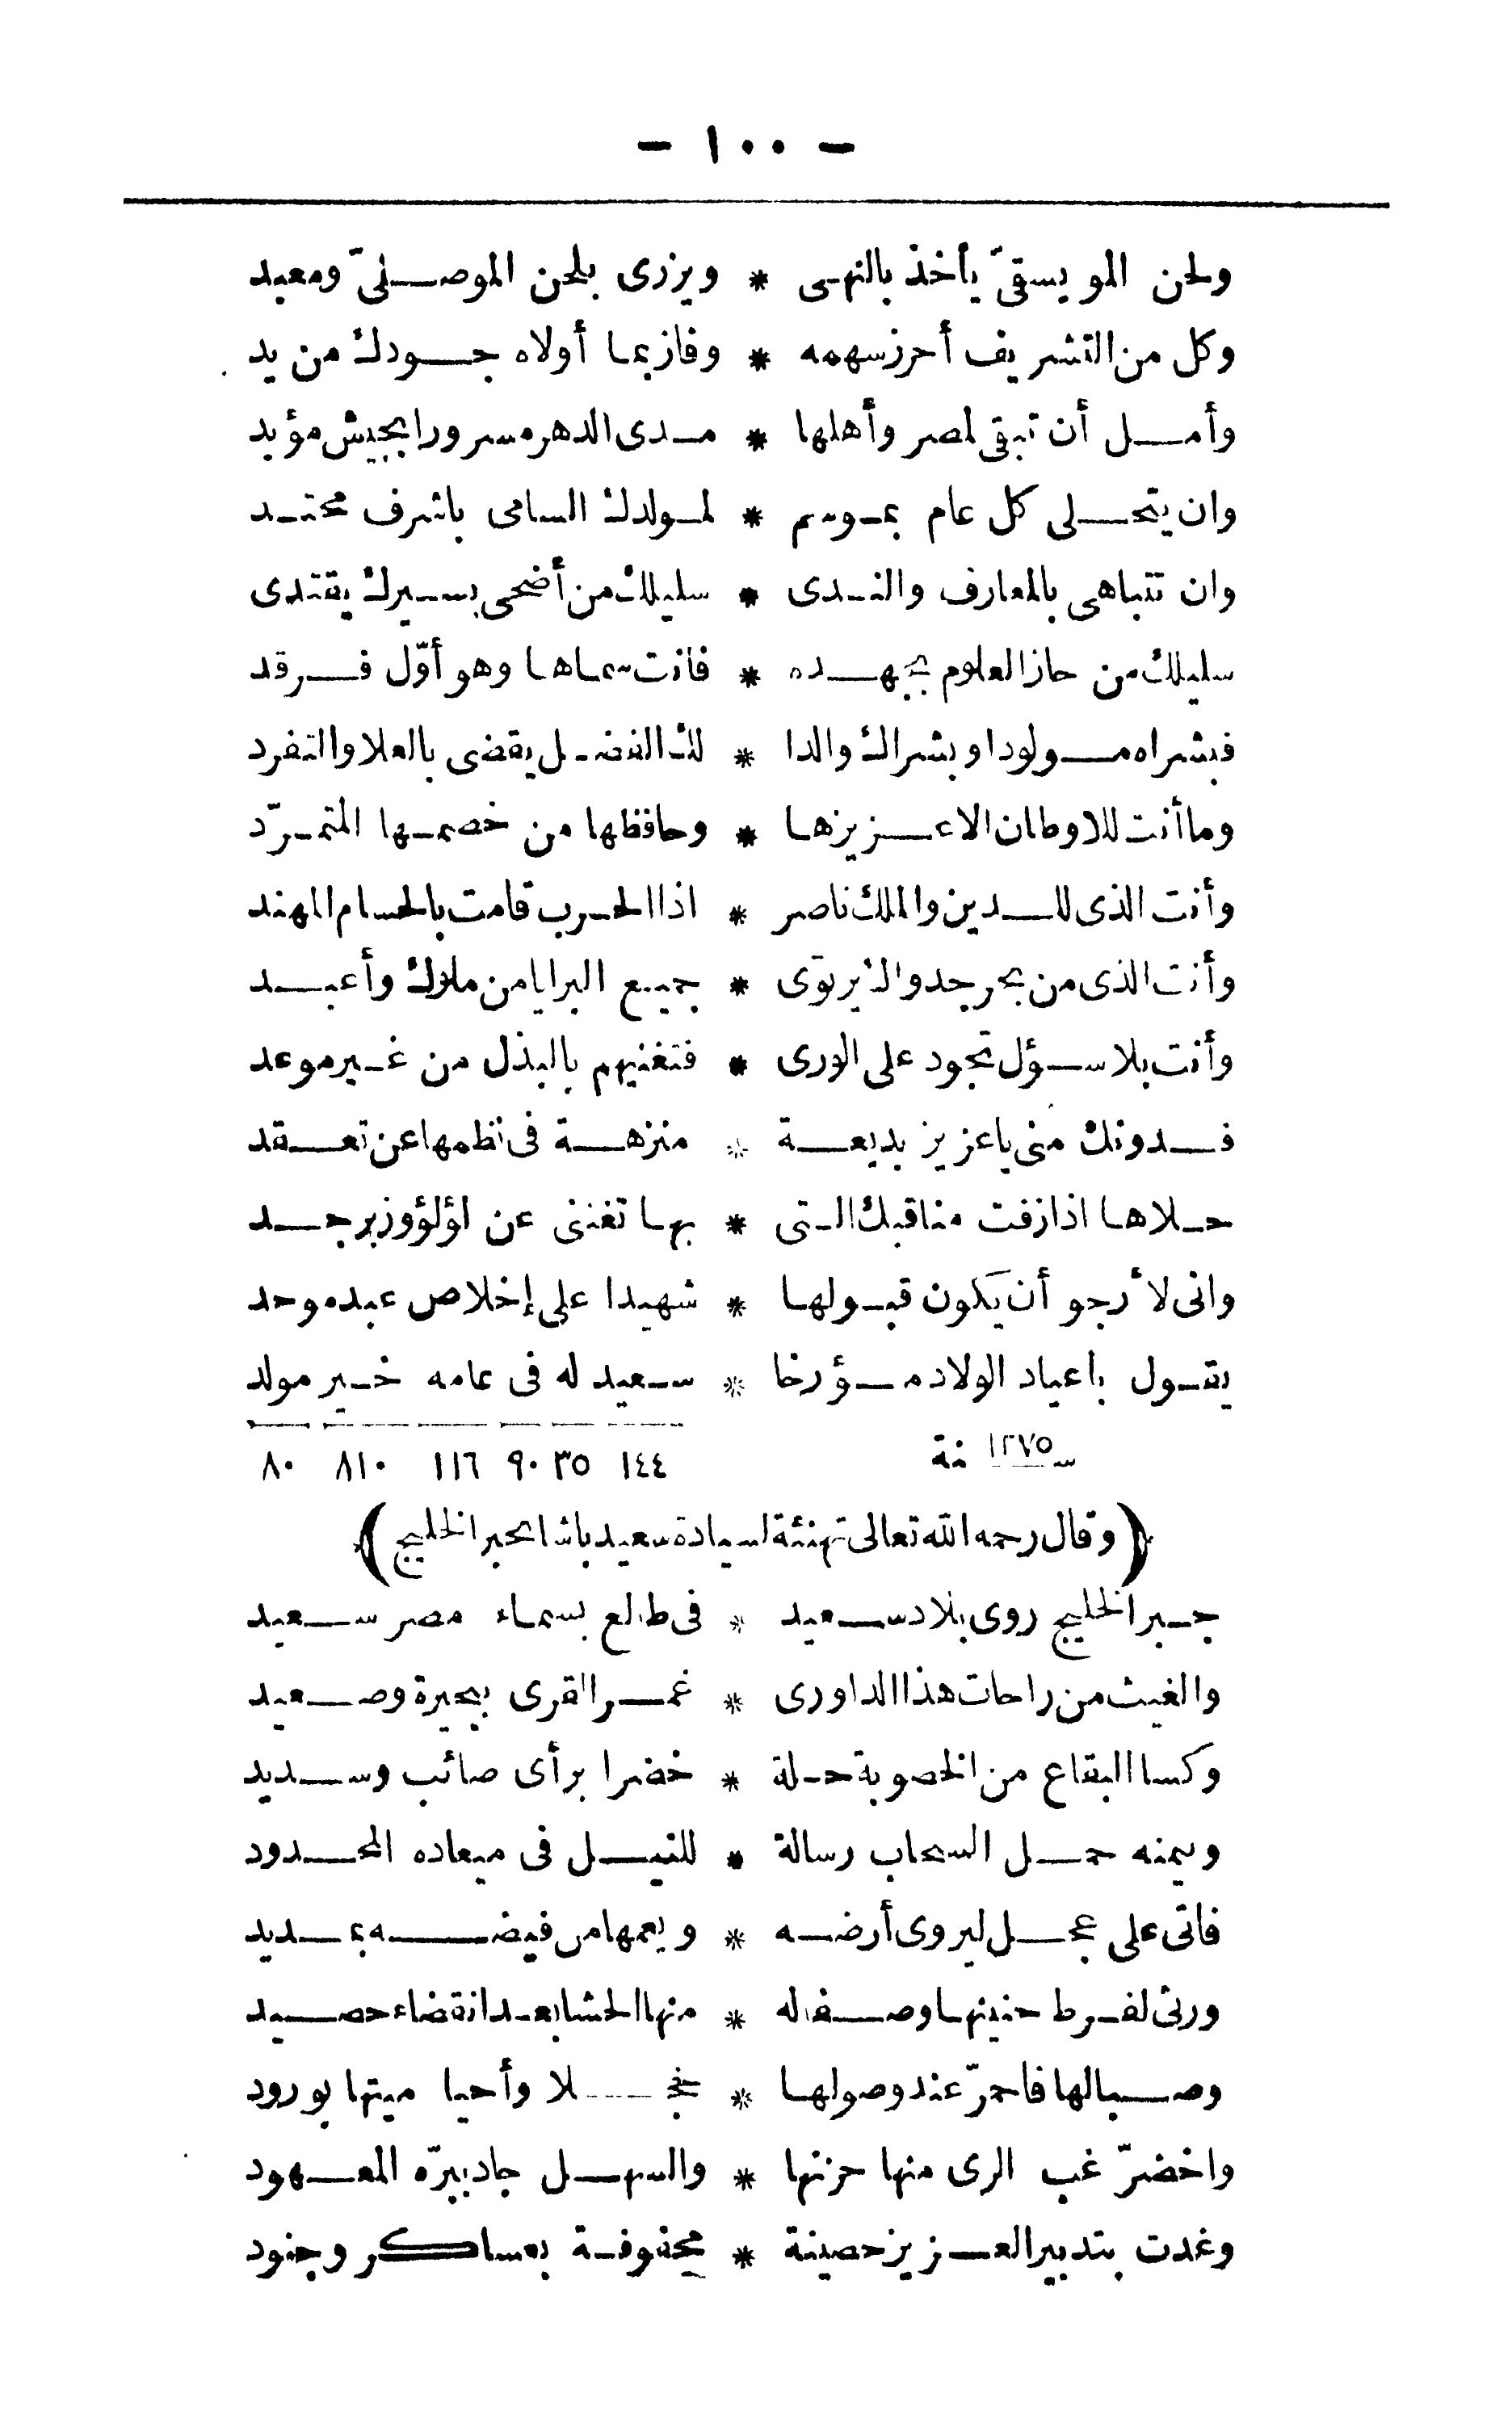 - ١٠٠ -
ولحن المويسقىّ يأخذ بالنهى * ويزرى بلحن الموصلىّ ومعبد
وكل من التشريف أحرز سهمه * وفاز بما أولاه جودك من يد
وأمل أن تبقى لمصر وأهلها * مدى الدهر مسرورا بجيش مؤيد
وان يتحلى كل عام بموسم * لمولدك السامى باشرف محتد
وان تتباهى بالمعارف والندى * سليلك من أضحى بسيرك يقتدى
سليلك من حاز العلوم بجهده * فانت سماها وهو أوّل فرقد
فبشراه مولودا وبشراك والدا * لك الفضل يقضى بالعلا والتفرد
وما أنت للاوطان الا عزيزها * وحافظها من خصمها المتمرّد
وأنت الذى للدين والملك ناصر * اذا الحرب قامت بالحسام المهند
وأنت الذى من بحر جدواك يرتوى * جميع البرايا من ملوك وأعبد
وأنت بلا سؤل تجود على الورى * فتغنيهم بالبذل من غير موعد
فدونك منى يا عزيز بديعة * منزهة فى نظمها عن تعقد
حلاها اذا زفت مناقبك التى * بها تغتنى عن لؤلؤ وزبرجد
وانى لأرجو أن يكون قبولها * شهيدا على إخلاص عبد موحد
يقول باعياد الولاد مؤرخا * سعيد له فى عامه خير مولد
سنة ١٢٧٥ ١٤٤ ٣٥ ٩٠ ١١٦ ٨١٠ ٨٠
﴿وقال رحمه الله تعالى تهنئة لسيادة سعيد باشا بجبر الخليج﴾
جبر الخليج روى بلاد سعيد * فى طالع بسماء مصر سعيد
والغيث من راحات هذا الداورى * غمر القرى ببحيرة وصعيد
وكسا البقاع من الخصوبة حلة * خضرا برأى صائب وسديد
وبيمنه حمل السحاب رسالة * للنيل فى ميعاده المحدود
فاتى على عجل ليروى أرضه * ويعمها من فيضه بمديد
ورثى لفرط حنينها وصفا له * منها الحشا بعد انقضاء حصيد
وصبا لها فاحمرّ عند وصولها * خجلا وأحيا ميتها بورود
واخضرّ غب الرى منها حزنها * والسهل جاد ببرّه المعهود
وغدت بتدبير العزيز حصينة * محفوفة بعساكر وجنود